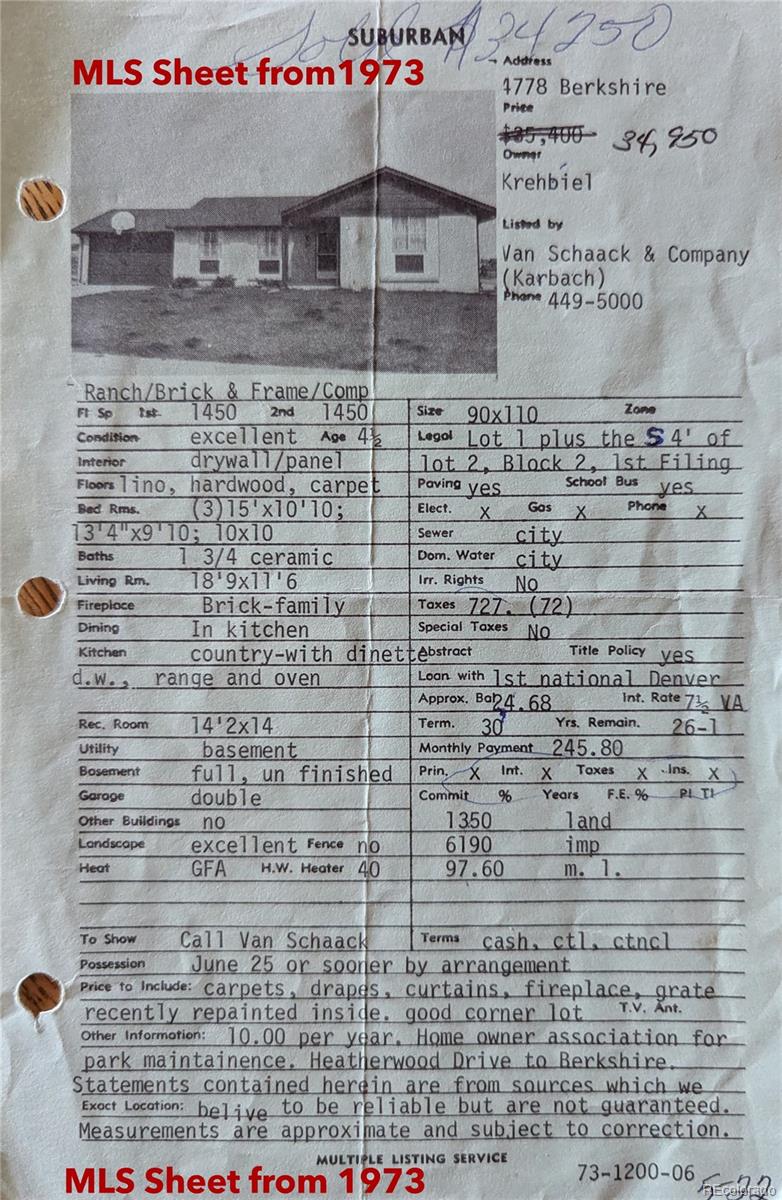 SUBURBAN
Sold $34250
MLS Sheet from1973
Address
4778 Berkshire
Price
$35,400 34,950
Owner
Krehbiel
Listed by
Van Schaack & Company
(Karbach)
Phone 449-5000
Ranch/Brick & Frame/Comp
Fl Sp 1st 1450 2nd 1450
Condition excellent Age 4½
Interior drywall/panel
Floors lino, hardwood, carpet
Bed Rms. (3)15'x10'10;
13'4"x9'10; 10x10
Baths 1 3/4 ceramic
Living Rm. 18'9x11'6
Fireplace Brick-family
Dining In kitchen
Kitchen country-with dinette
d.w., range and oven
Rec. Room 14'2x14
Utility basement
Basement full, un finished
Garage double
Other Buildings no
Landscape excellent Fence no
Heat GFA H.W. Heater 40
Size 90x110 Zone
Legal Lot 1 plus the S 4' of
lot 2, Block 2, 1st Filing
Paving yes School Bus yes
Elect. x Gas x Phone x
Sewer city
Dom. Water city
Irr. Rights No
Taxes 727. (72)
Special Taxes No
Abstract Title Policy yes
Loan with 1st national Denver
Approx. Bal 24.68 Int. Rate 7½ VA
Term. 30 Yrs. Remain. 26-1
Monthly Payment 245.80
Prin. x Int. x Taxes x Ins. x
Commit % Years F.E. % PI TI
1350 land
6190 imp
97.60 m. l.
To Show Call Van Schaack
Terms cash, ctl, ctncl
Possession June 25 or sooner by arrangement
Price to Include: carpets, drapes, curtains, fireplace, grate
recently repainted inside. good corner lot T.V. Ant.
Other Information: 10.00 per year. Home owner association for
park maintainence. Heatherwood Drive to Berkshire.
Statements contained herein are from sources which we
Exact Location: belive to be reliable but are not guaranteed.
Measurements are approximate and subject to correction.
MULTIPLE LISTING SERVICE
73-1200-06
MLS Sheet from 1973
REcolorado